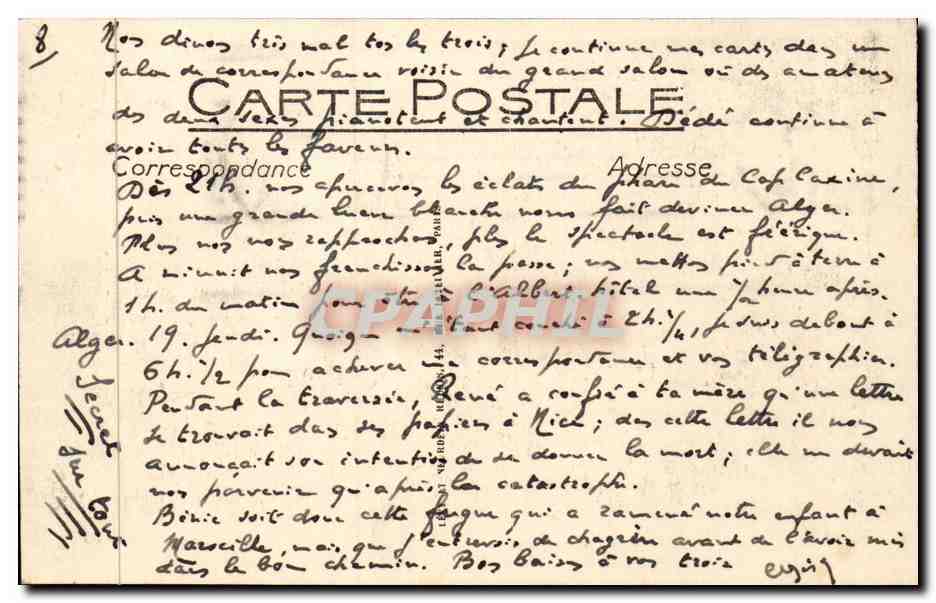 8)
Nos dinons très mal tos les trois ; je continue mes cartes dans un
salon de correspondance voisin du grand salon où des amateurs
CARTE POSTALE
des deux sexes pianotent et chantent. Dédé continue à
avoir toutes les faveurs.
Correspondance
Adresse
Dès 21h. nos apercevos les éclats du phare du Cap Caxine,
puis une grande lueur blanche nous fait deviner Alger.
Plus nos nos rapprochos, plus le spectacle est féérique.
A minuit nos franchissos la passe ; nos mettos pied à terre à
1h. du matin pour être à l'Albert-hôtel une 1/2 heure après.
Alger. 19. jeudi. Quoique m'étant couché à 2h. 1/4, je suis debout à
6h. 1/2 pour achever ma correspondance et vos télégraphier.
Pendant la traversée, René a confié à ta mère qu'une lettre
se trouvait das ses papiers à Nice ; das cette lettre il nous
annonçait son intention de se donner la mort ; elle ne devait
nos parvenir qu'après la catastrophe.
Bénie soit donc cette fugue qui a ramené notre enfant à
Marseille, mais que j'entrevois de chagrin avant de l'avoir mis
dans le bon chemin. Bos baises à vos trois
Secret
pour
tous
CPAPHIL